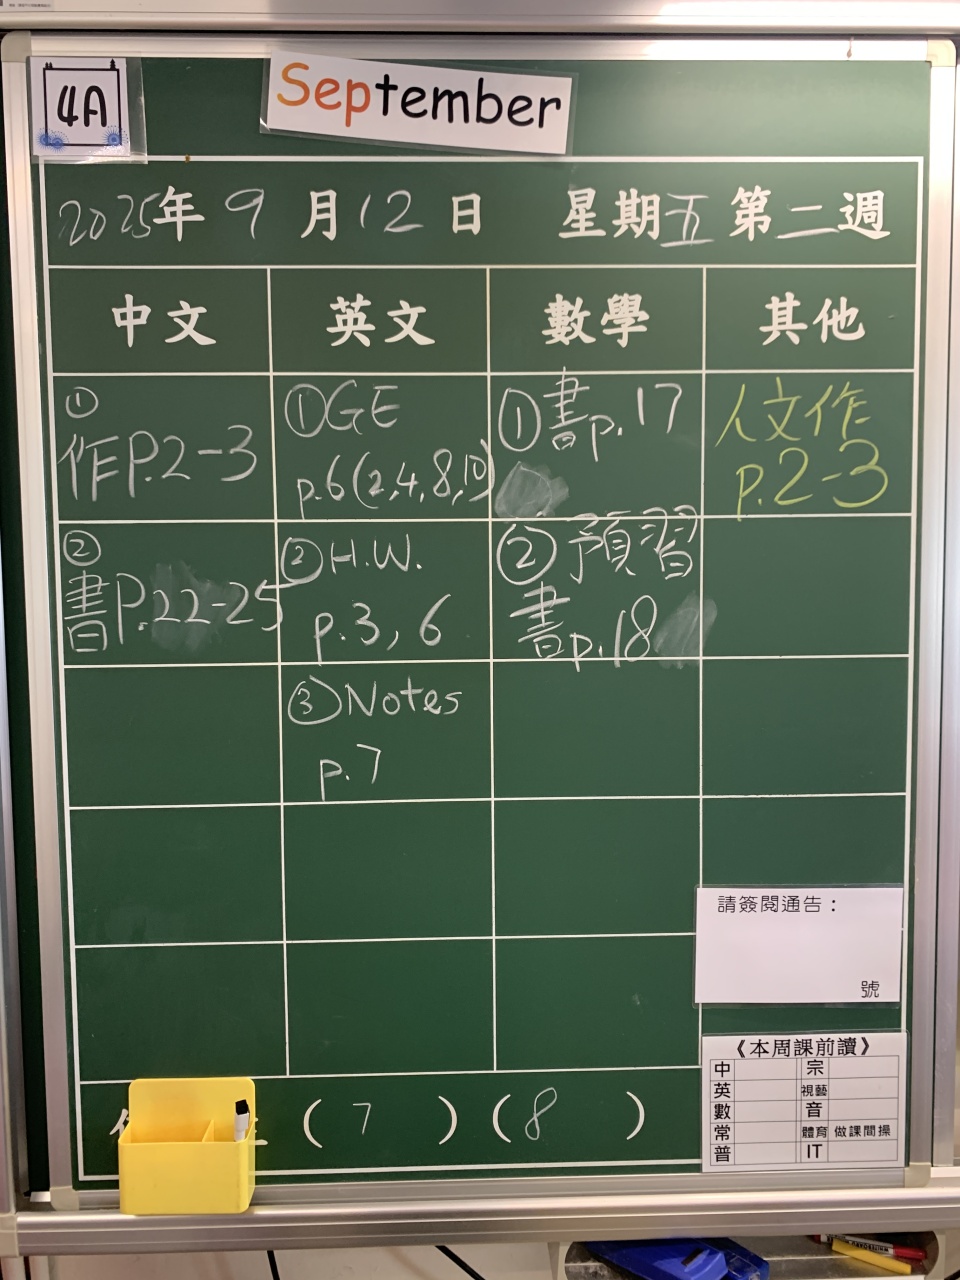 4A
September
2025年 9月12日 星期五 第二週
中文 英文 數學 其他
①
作P.2-3
①GE
p.6(2,4,8,10)
①書p.17
人文作
p.2-3
②
書P.22-25
②H.W.
p.3, 6
②預習
書p.18
③Notes
p.7
請簽閱通告：
號
《本周課前讀》
中 宗
英 視藝
數 音
常 體育 做課間操
普 IT
( 7 ) ( 8 )